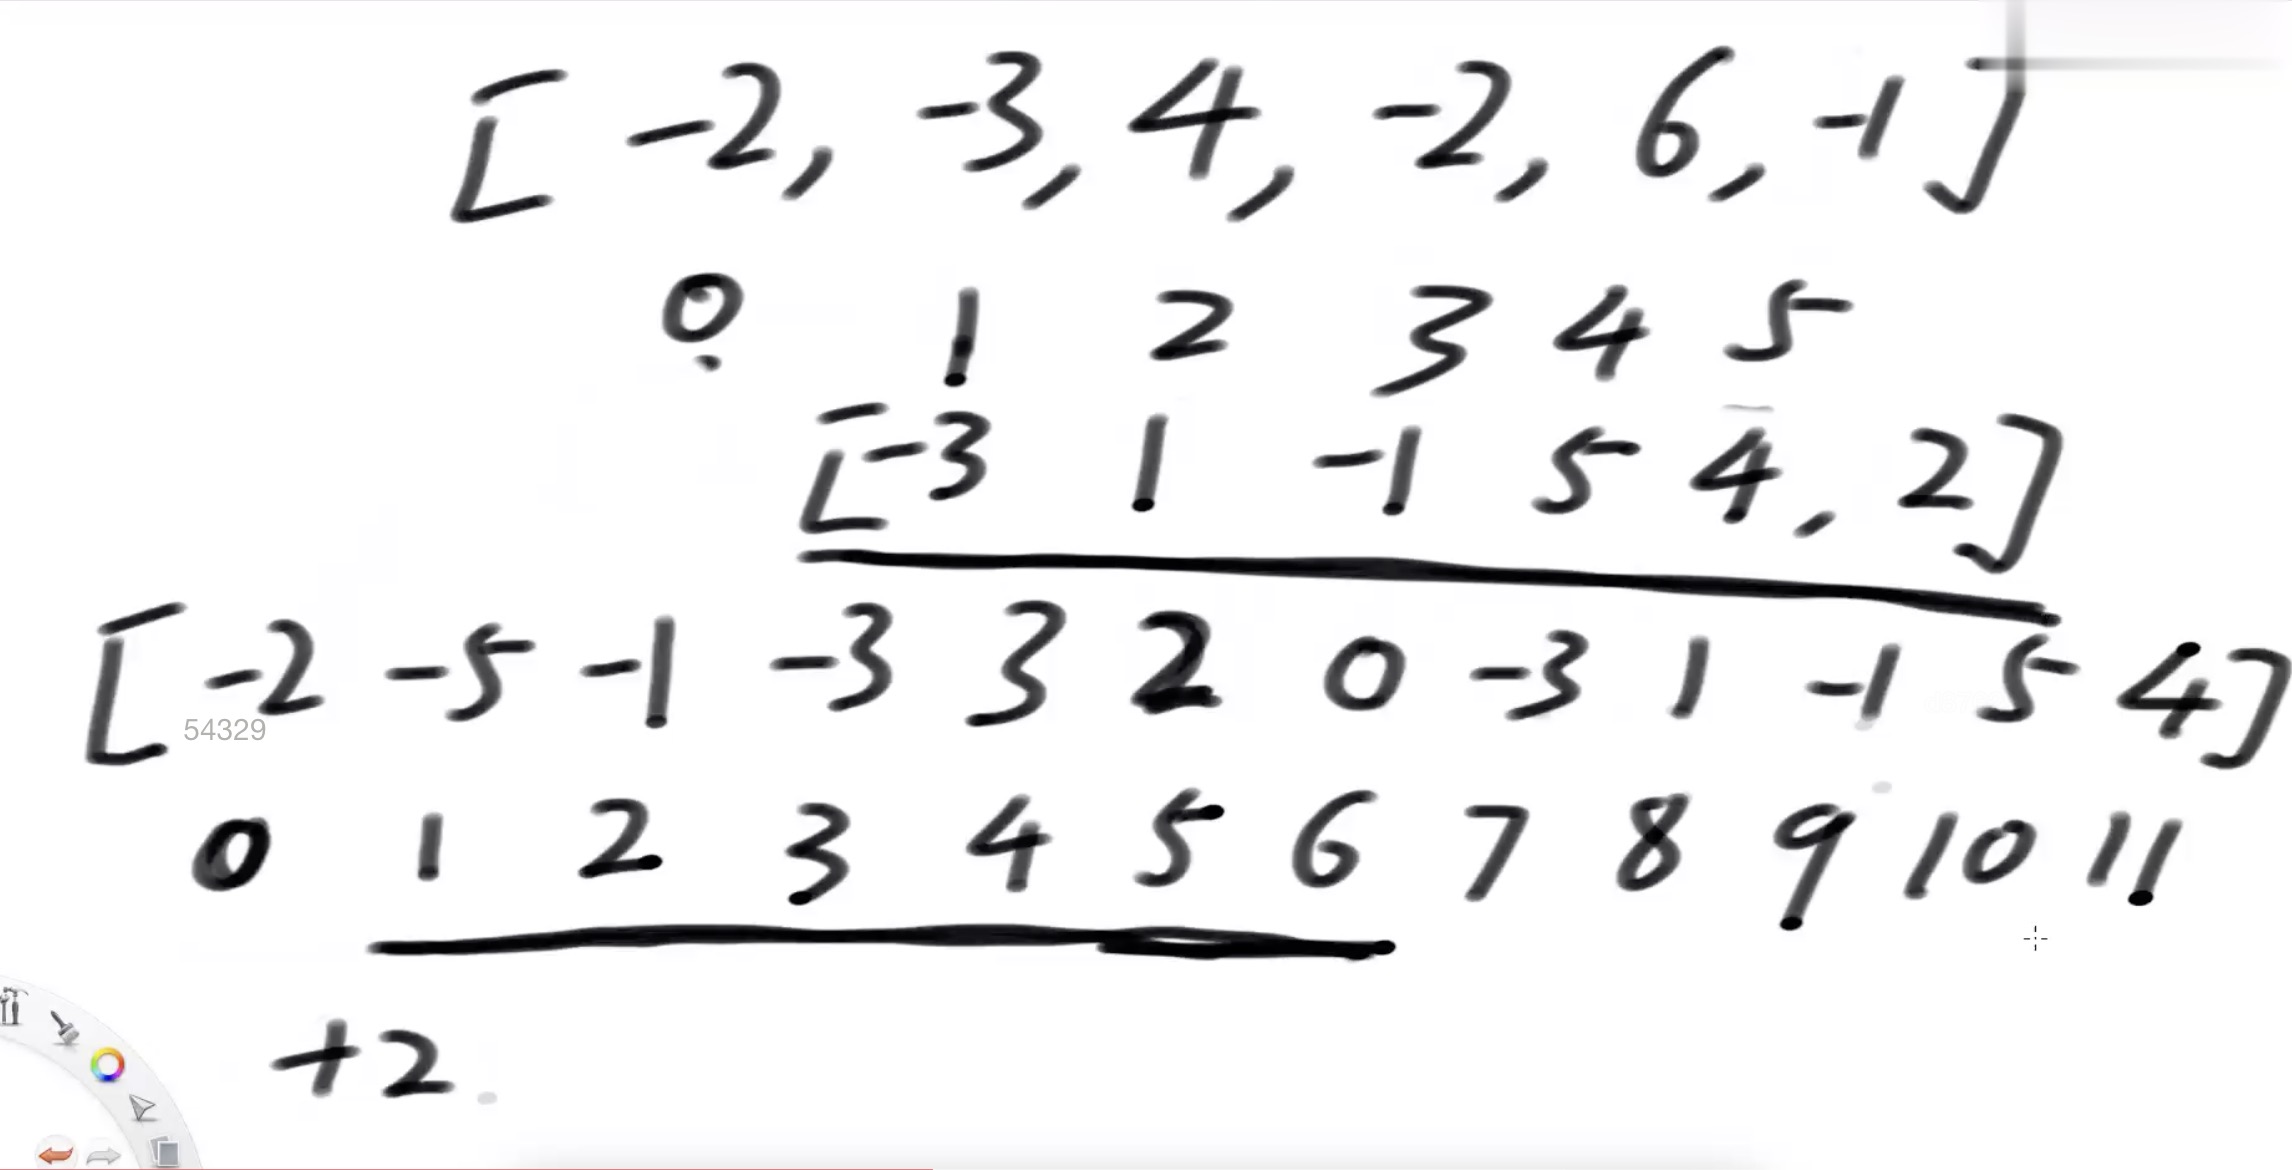 [ -2, -3, 4, -2, 6, -1 ]
0 1 2 3 4 5
[ -3 1 -1 5 4, 2 ]
[ -2 -5 -1 -3 3 2 0 -3 1 -1 5 4 ]
54329
0 1 2 3 4 5 6 7 8 9 10 11
+2